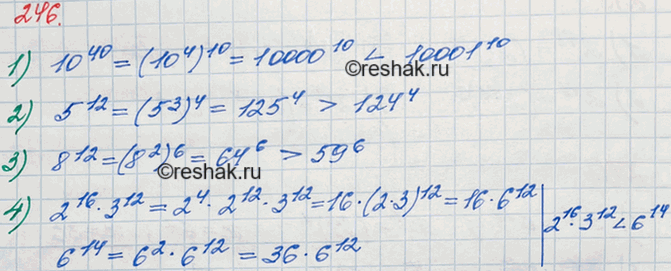 246.
1) 10^40 = (10^4)^10 = 10000^10 < 10001^10
©reshak.ru
2) 5^12 = (5^3)^4 = 125^4 > 124^4
3) 8^12 = (8^2)^6 = 64^6 > 59^6
©reshak.ru
4) 2^16 · 3^12 = 2^4 · 2^12 · 3^12 = 16 · (2 · 3)^12 = 16 · 6^12 | 2^16 · 3^12 < 6^14
6^14 = 6^2 · 6^12 = 36 · 6^12